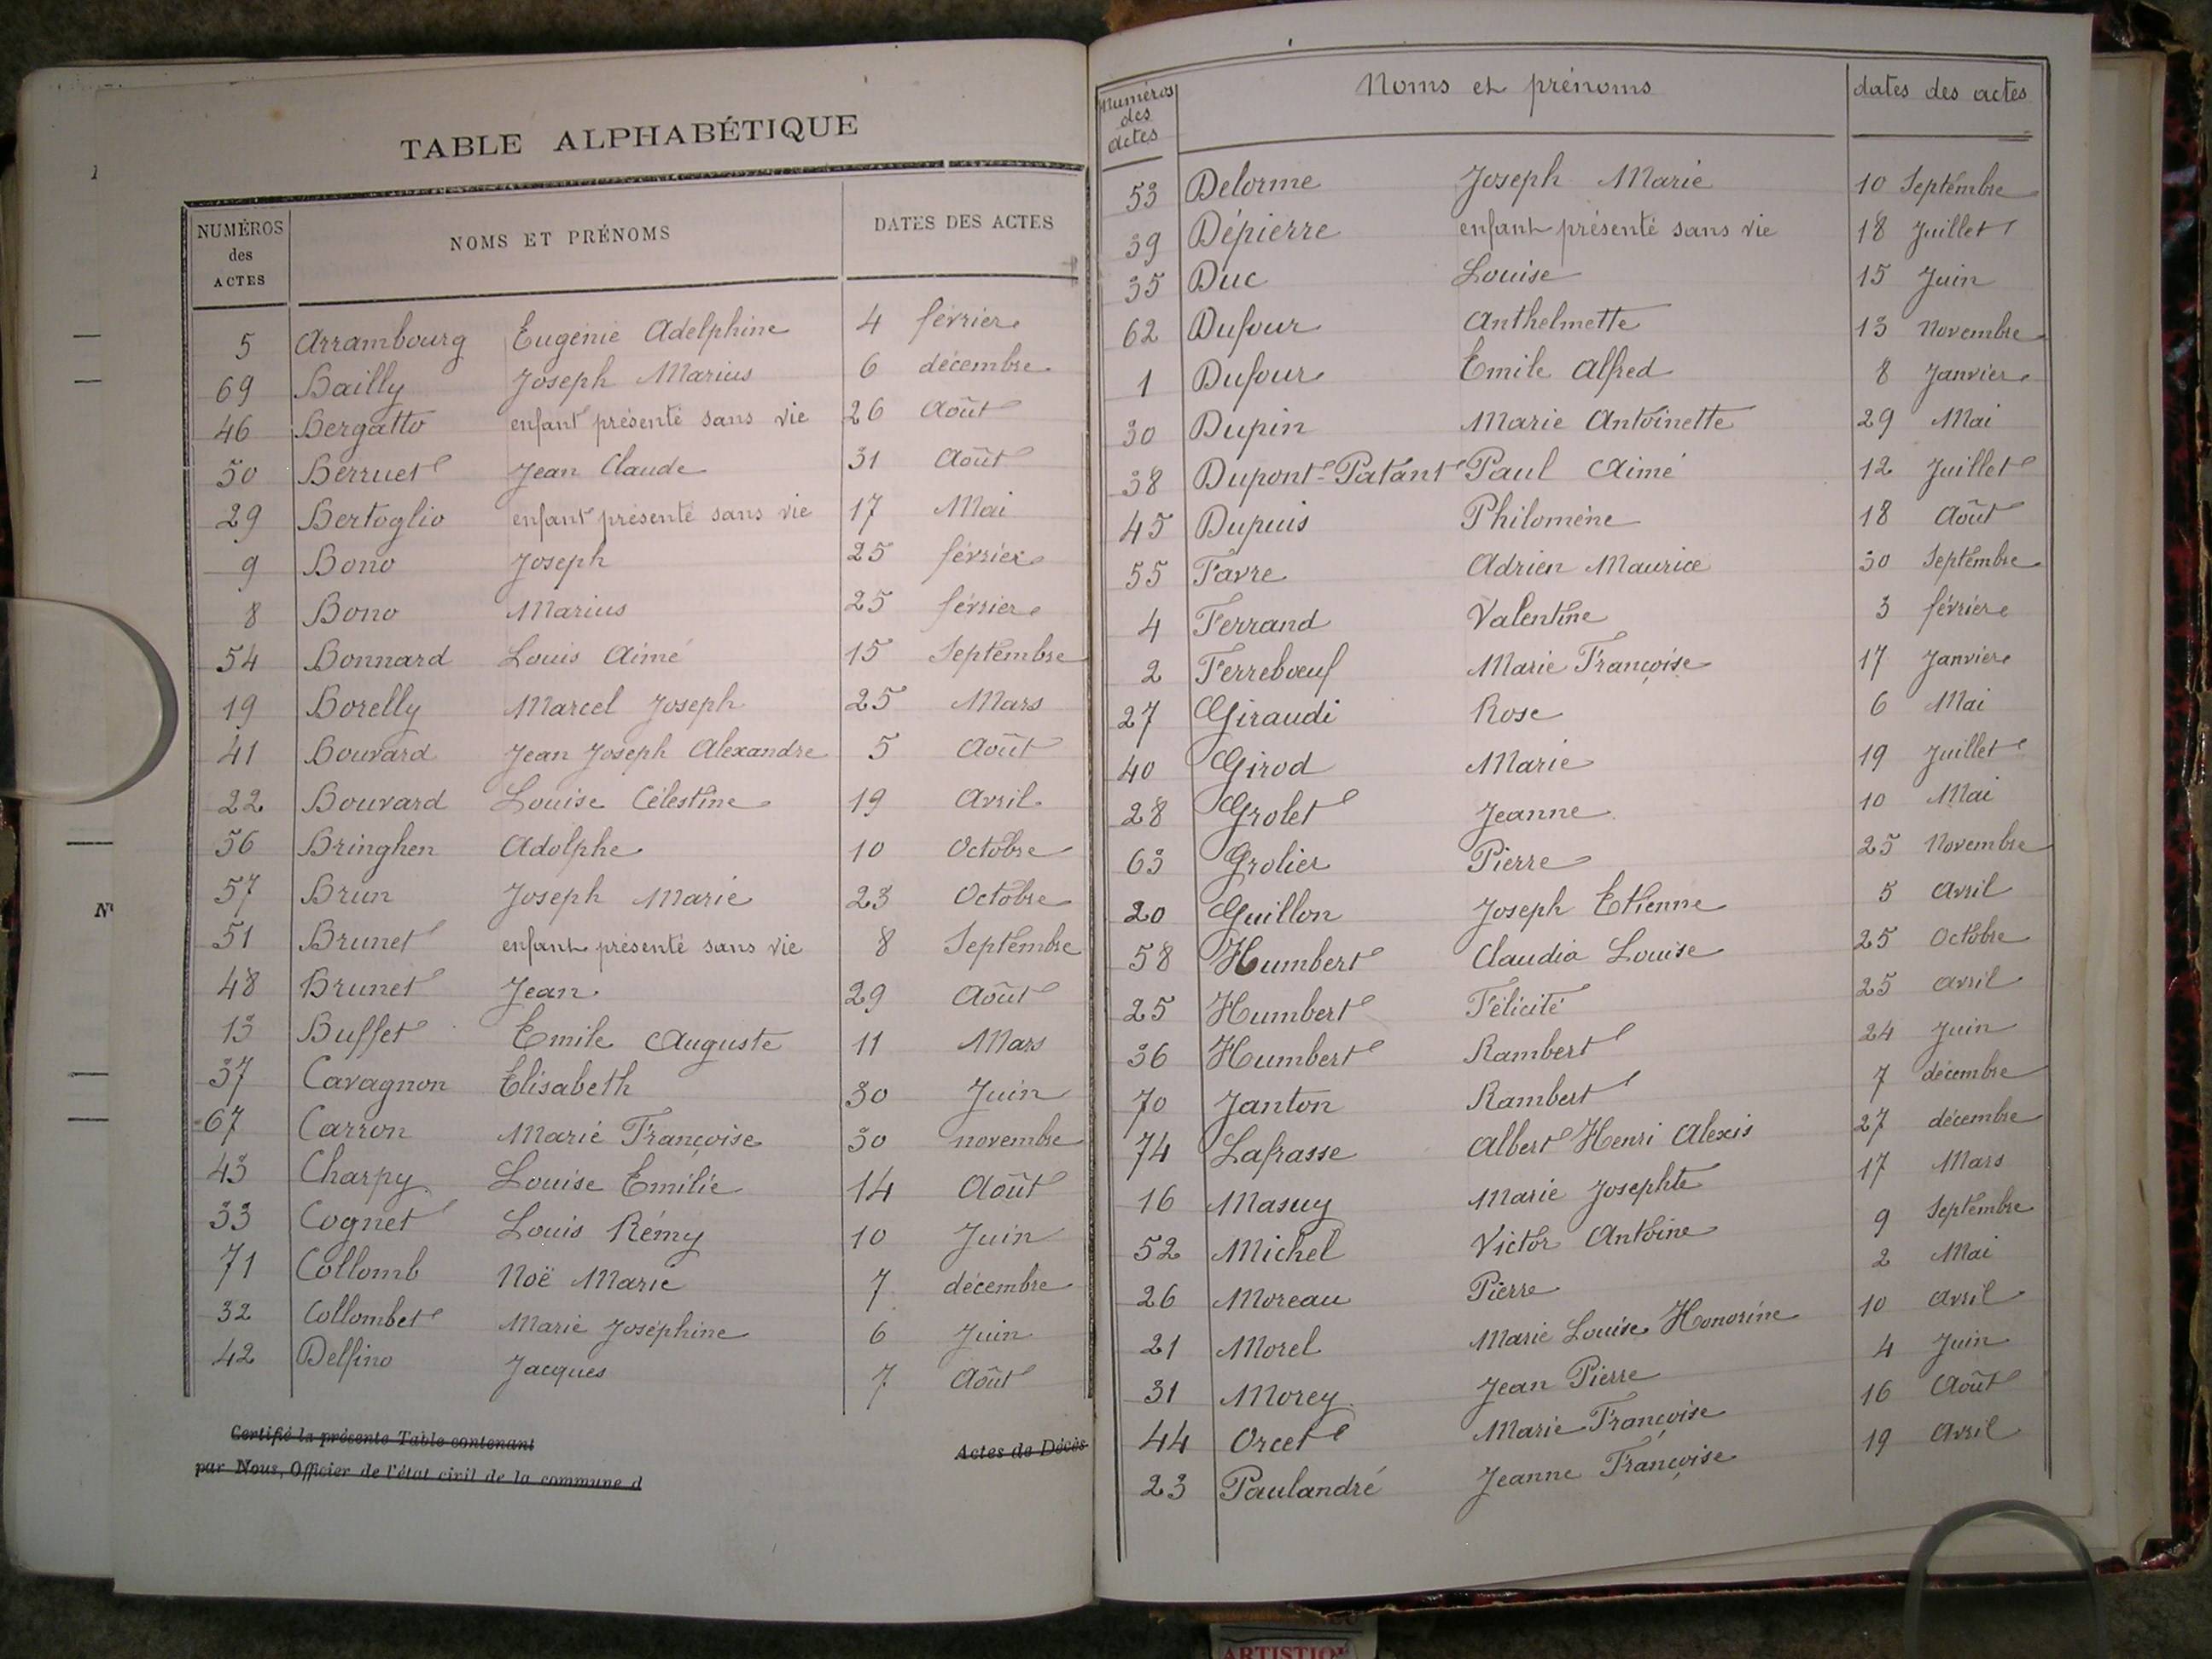 TABLE ALPHABÉTIQUE
NUMÉROS des ACTES NOMS ET PRÉNOMS DATES DES ACTES
5 Arrambourg Eugénie Adelphine 4 février
69 Bailly Joseph Marius 6 décembre
46 Bergatto enfant présenté sans vie 26 Août
50 Berruet Jean Claude 31 Août
29 Bertoglio enfant présenté sans vie 17 Mai
9 Bono Joseph 25 février
8 Bono Marius 25 février
54 Bonnard Louis Aimé 15 Septembre
19 Borelly Marcel Joseph 25 Mars
41 Bouvard Jean Joseph Alexandre 5 Août
22 Bouvard Louise Célestine 19 Avril
56 Bringhen Adolphe 10 Octobre
57 Brun Joseph Marie 23 Octobre
51 Brunet enfant présenté sans vie 8 Septembre
48 Brunet Jean 29 Août
13 Buffet Emile Auguste 11 Mars
37 Cavagnon Elisabeth 30 Juin
67 Carron Marie Françoise 30 novembre
43 Charpy Louise Emilie 14 Août
33 Cognet Louis Rémy 10 Juin
71 Collomb Noë Marie 7 décembre
32 Collombet Marie Joséphine 6 Juin
42 Delfino Jacques 7 Août
Certifié la présente Table contenant Actes de Décès
par Nous, Officier de l'état civil de la commune d
Numéros des actes Noms et prénoms dates des actes
53 Delorme Joseph Marie 10 Septembre
39 Dépierre enfant présenté sans vie 18 Juillet
35 Duc Louise 15 Juin
62 Dufour Anthelmette 13 Novembre
1 Dufour Emile Alfred 8 Janvier
30 Dupin Marie Antoinette 29 Mai
38 Dupont-Patant Paul Aimé 12 Juillet
45 Dupuis Philomène 18 Août
55 Favre Adrien Maurice 30 Septembre
4 Ferrand Valentine 3 février
2 Ferrebœuf Marie Françoise 17 Janvier
27 Giraudi Rose 6 Mai
40 Girod Marie 19 Juillet
28 Grolet Jeanne 10 Mai
63 Grolier Pierre 25 Novembre
20 Guillon Joseph Etienne 5 Avril
58 Humbert Claudia Louise 25 Octobre
25 Humbert Félicité 25 avril
36 Humbert Rambert 24 Juin
70 Janton Rambert 7 décembre
74 Lafrasse Albert Henri Alexis 27 décembre
16 Masuy Marie Josephte 17 Mars
52 Michel Victor Antoine 9 Septembre
26 Moreau Pierre 2 Mai
21 Morel Marie Louise Honorine 10 avril
31 Morey Jean Pierre 4 Juin
44 Orcet Marie Françoise 16 Août
23 Paulandré Jeanne Françoise 19 Avril